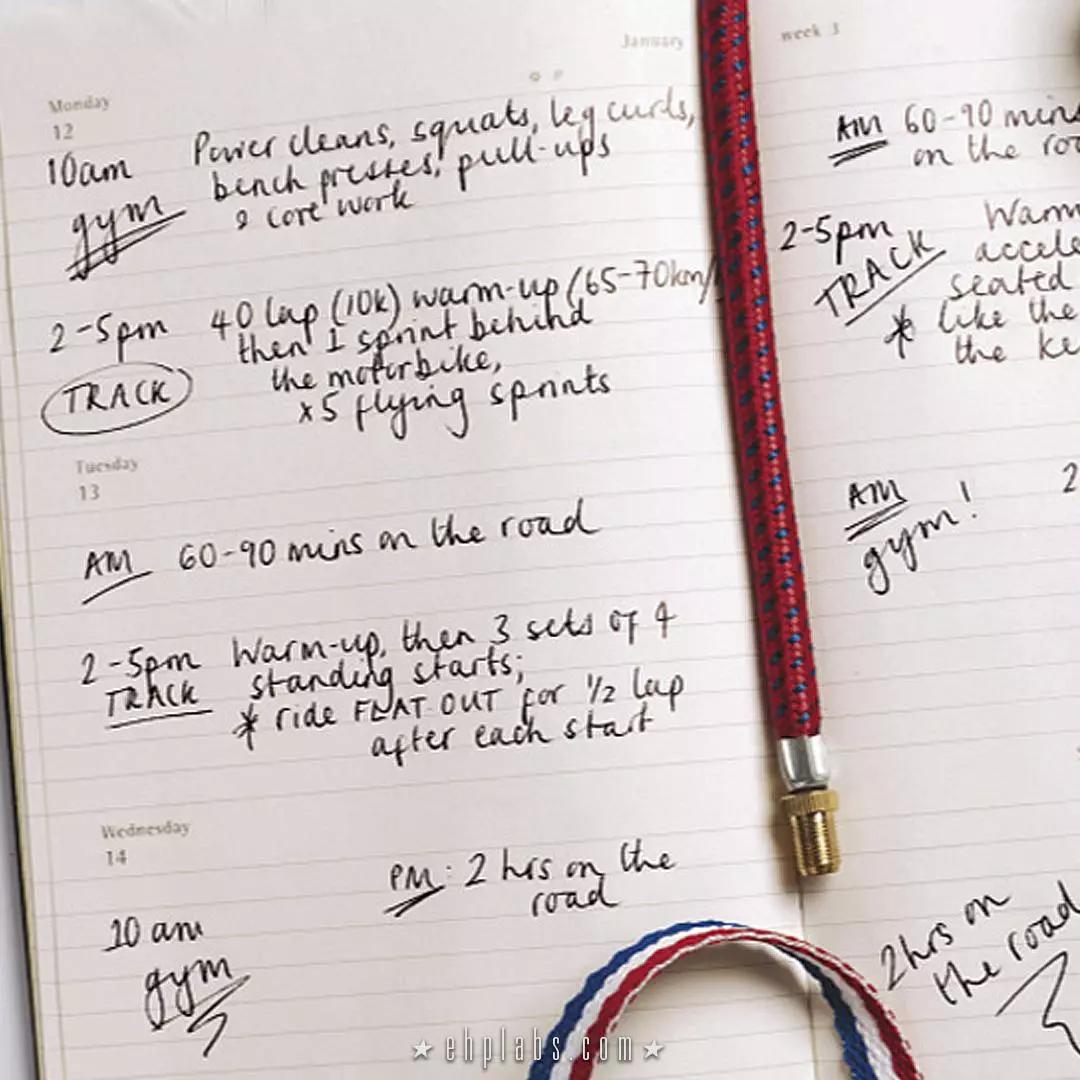 January
Monday
12
10am Power cleans, squats, leg curls,
bench presses, pull-ups
gym & core work
2-5pm 40 lap (10k) warm-up (65-70km/
then 1 sprint behind
the motorbike,
TRACK x5 flying sprints
Tuesday
13
AM 60-90 mins on the road
2-5pm Warm-up, then 3 sets of 4
TRACK standing starts;
* ride FLAT OUT for 1/2 lap
after each start
Wednesday
14
PM: 2 hrs on the
road
10 am
gym
week 3
AM 60-90 mins
on the
2-5pm Warm
TRACK
seated
* like the
the
AM 2
gym!
2hrs on
the road
★ ehplabs.com ★